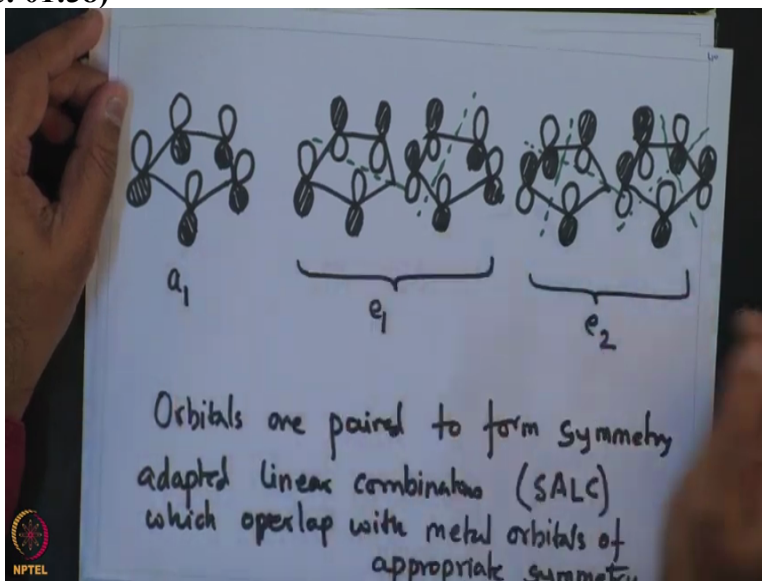 : 01:58)
a1
e1
e2
Orbitals are paired to form symmetry
adapted linear combinatons (SALC)
which operlap with metal orbitals of
appropriate symmetry
NPTEL